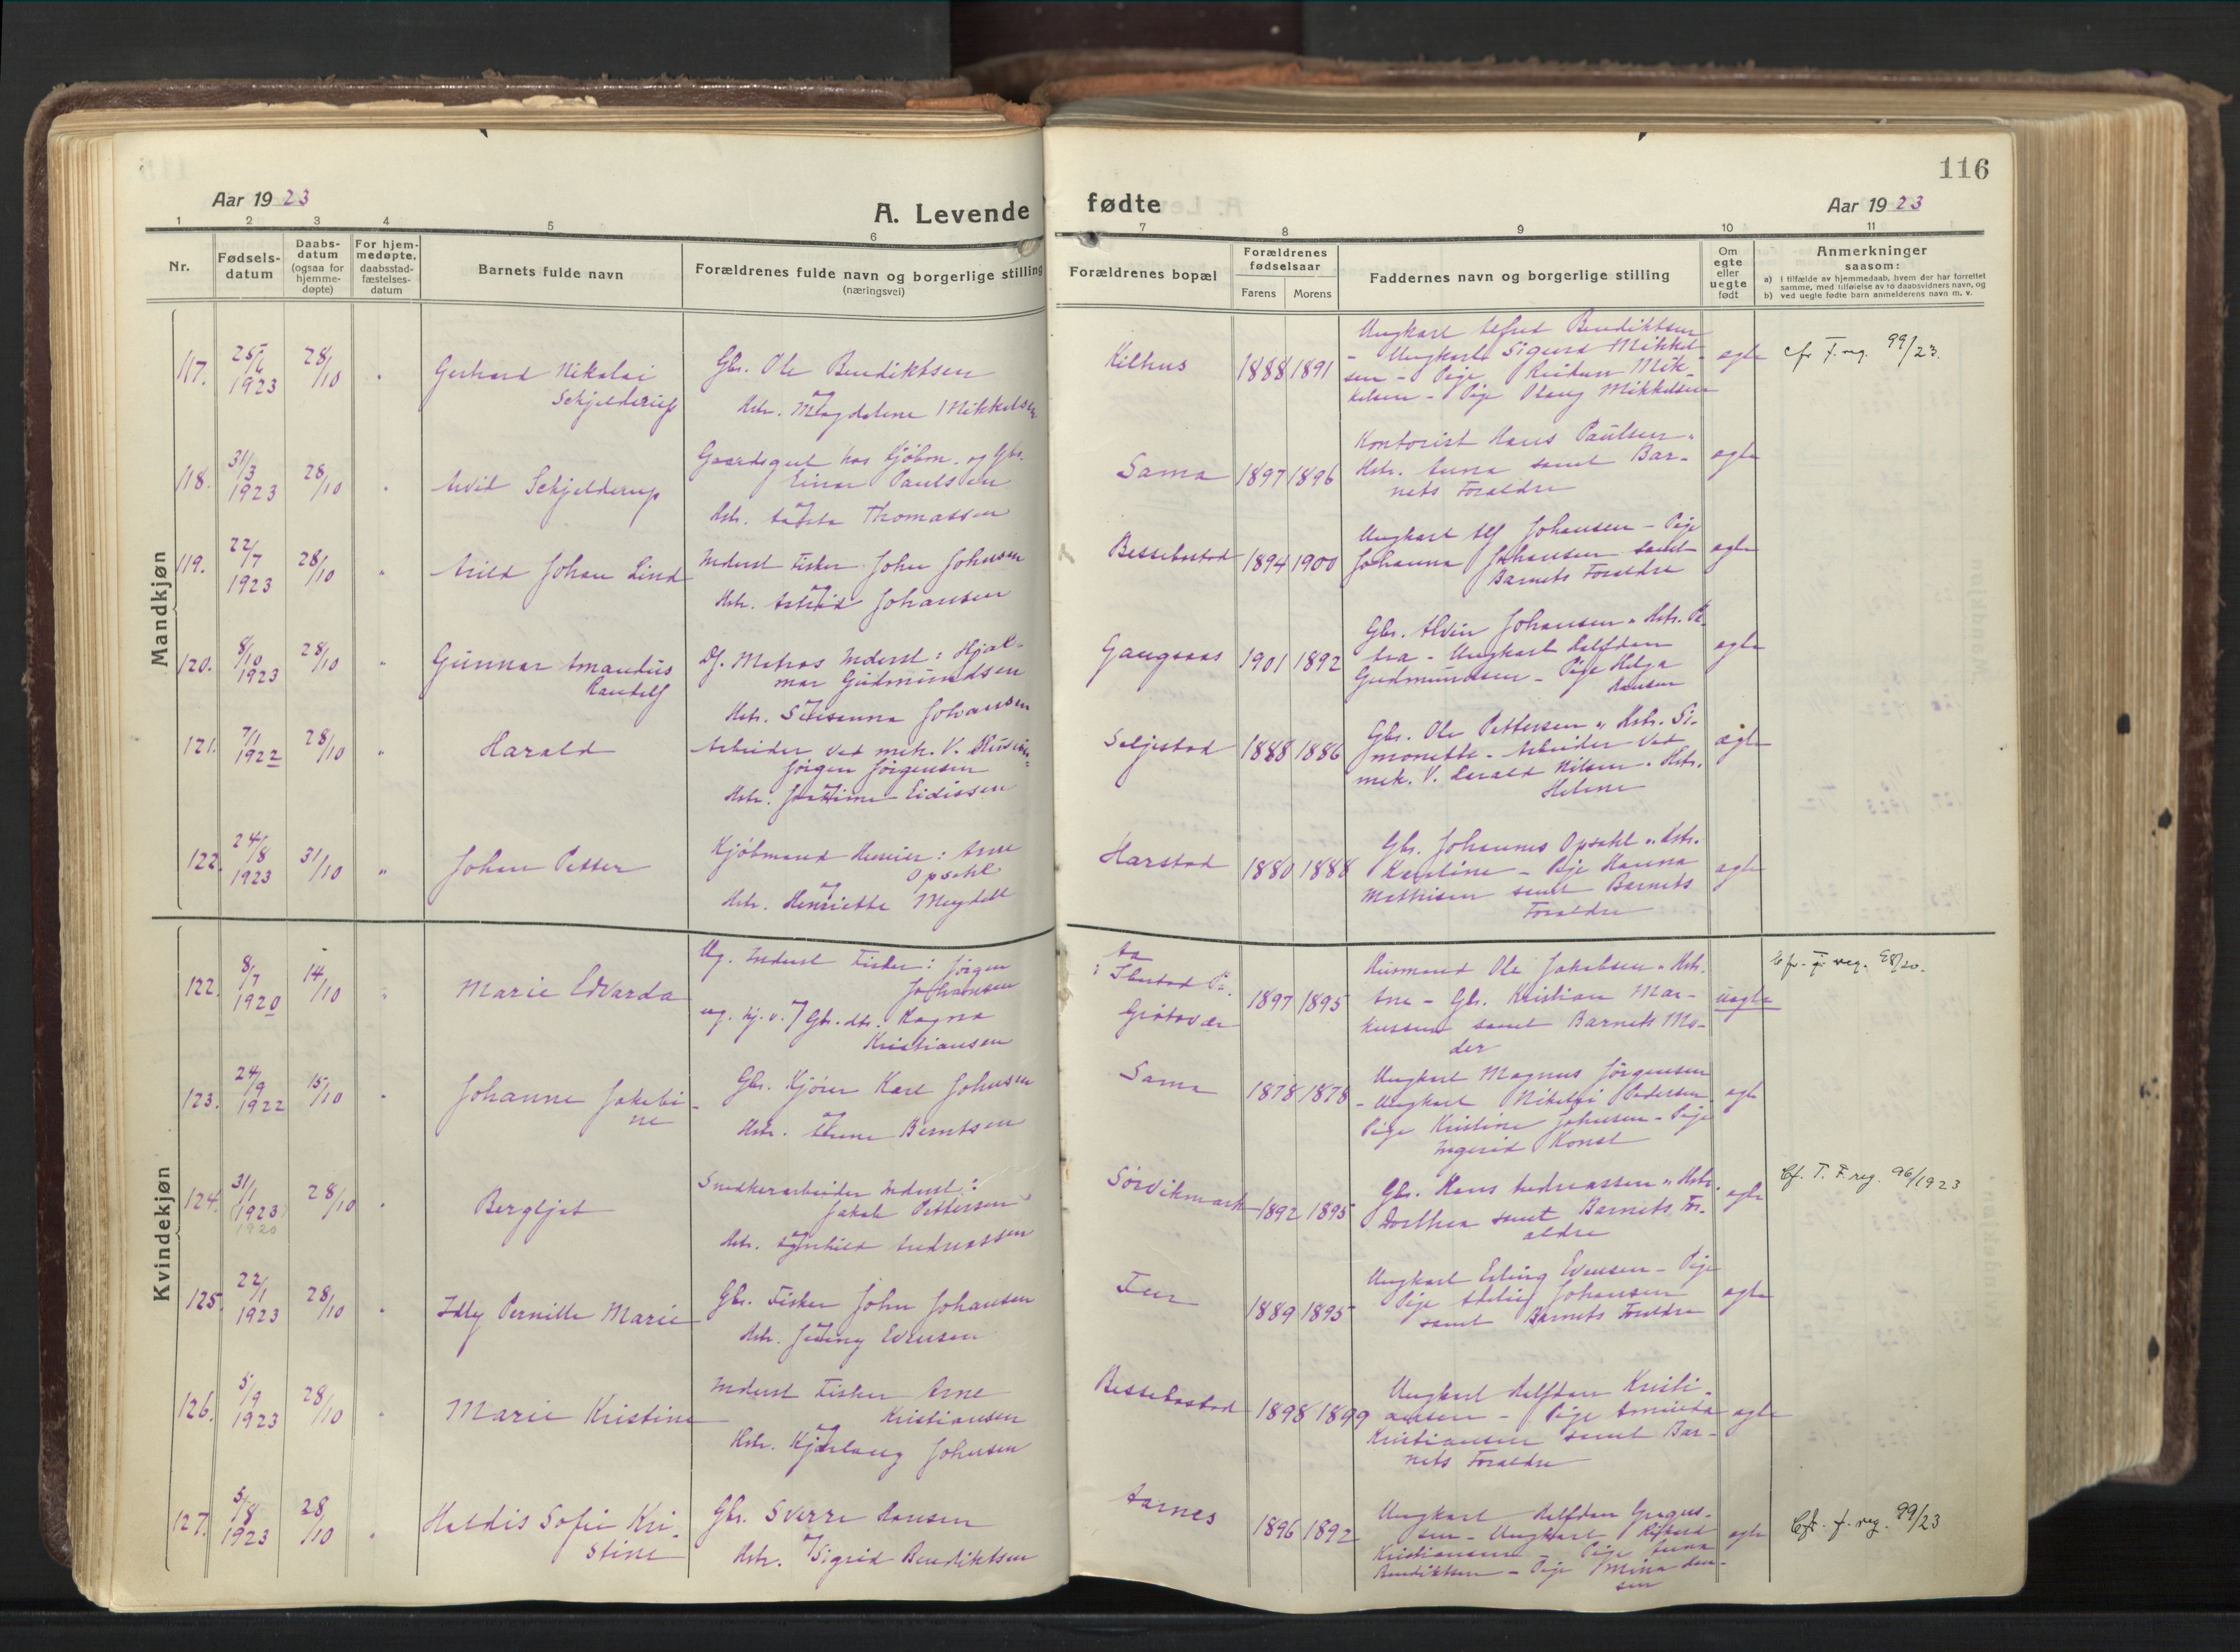 116
Aar 1923
A. Levende
fødte
Aar 1923
1 2 3 4 5 6 7 8 9 10 11
Nr.
Fødsels-
datum
Daabs-
datum
(ogsaa for
hjemme-
døpte)
For hjem-
medøpte,
daabsstad-
fæstelses-
datum
Barnets fulde navn
Forældrenes fulde navn og borgerlige stilling
(næringsvei)
Forældrenes bopæl
Forældrenes
fødselsaar
Farens Morens
Faddernes navn og borgerlige stilling
Om
egte
eller
uegte
født
Anmerkninger
saasom:
a) i tilfælde av hjemmedaab, hvem der har forrettet
samme, med tilføielse av to daabsvidners navn, og
b) ved uegte fødte barn anmelderens navn m. v.
Mandkjøn
117.
25/6
1923
28/10
Gerhard Nikolai
Schjelderup
Gbr. Ole Bendiktsen
Hstr. Magdalene Mikkelsen
Kilhus
1888 1891
Ungkarl Alfred Bendiktsen
- Ungkarl Sigurd Mikkel-
sen - Pige Reidun Mik-
kelsen - Pige Olaug Mikkelsen
egte
cfr. F. reg. 99/23.
118.
31/3
1923
28/10
Arvid Schjelderup
Gaardsgut hos Kjøbm. og Gbr.
Einar Paulsen
Hstr. Thomassen
Sama
1897 1896
Kontorist Hans Paulsen "
Hstr. Anna samt Bar-
nets Forældre
egte
119.
22/7
1923
28/10
Arild Johan Lind
Inderst Fisker John Johnsen
Hstr. Astrid Johansen
Bessebostad
1894 1900
Ungkarl Alf Johansen - Pige
Johanna Johansen samt
Barnets Forældre
egte
120.
8/10
1923
28/10
Gunnar Amandus
Randolf
Df. Matros Inderst: Hjal-
mar Gudmundsen
Hstr. Susanna Johansen
Gangsaas
1901 1892
Gbr. Alvin Johansen " Hstr. Pe-
tra - Ungkarl Halfdan
Gudmundsen - Pige Helga
Hansen
egte
121.
7/1
1922
28/10
Harald
Arbeider ved mek. V.
Jørgen Jørgensen
Hstr. Eidissen
Seljestad
1888 1886
Gbr. Ole Pettersen " Hstr. Si-
monette - Arbeider ved
mek. V. Harald Nilsen " Hstr.
Helene
egte
122.
24/8
1923
31/10
Johan Petter
Kjøbmand Arne
Opsahl
Hstr. Henriette Meydell
Harstad
1880 1888
Gbr. Johannes Opsahl " Hstr.
Karoline - Pige Hanna
Mathisen samt Barnets
Forældre
egte
Kvindekjøn
122.
8/7
1920
14/10
Marie Edvarda
Ug. Inderst Fisker: Jørgen
Johansen
ug. hj. v. Gbr. dtr. Ragna
Kristiansen
Aa
i Ibestad P.
Grøtavær
1897 1895
Husmand Ole Jakobsen " Hstr.
Ane - Gbr. Kristian Mar-
kussen samt Barnets Mo-
der
uegte
Cfr. F. reg. 58/20.
123.
24/9
1922
15/10
Johanne Jakobi-
ne
Gbr. Kjører Karl Johnsen
Hstr. Anne Berntsen
Sama
1878 1878
Ungkarl Magnus Jørgensen
- Ungkarl Nikolai Pedersen
Pige Kristine Johnsen - Pige
Ingerid Konst
egte
124.
31/1
1923
1920
28/10
Bergljot
Snedkerarbeider Inderst:
Jakob Pettersen
Hstr. Andreassen
Sørvikmark
1892 1895
Gbr. Hans Andreassen " Hstr.
Dorthea samt Barnets For-
ældre
egte
Cf. T. F. reg. 96/1923
125.
22/1
1923
28/10
Idly Pernille Marie
Gbr. Fisker John Johansen
Hstr. Jenny Evensen
1889 1895
Ungkarl Erling Evensen - Pige
Pige Johansen
samt Barnets Forældre
egte
126.
5/9
1923
28/10
Marie Kristine
Inderst Fisker Arne
Kristiansen
Hstr. Kjellaug Johnsen
Bessebostad
1898 1899
Ungkarl Halfdan Kristi-
ansen - Pige Amanda
Kristiansen samt Bar-
nets Forældre
egte
127.
5/8
1923
28/10
Haldis Sofie Kri-
stine
Gbr. Sverre Hansen
Hstr. Sigrid Bendiktsen
Aarnes
1896 1892
Ungkarl Halfdan Gregus-
sen - Ungkarl Rikard
Kristiansen - Pige Anna
Bendiktsen - Pige Mina Han-
sen
egte
Cfr. f. reg. 99/23